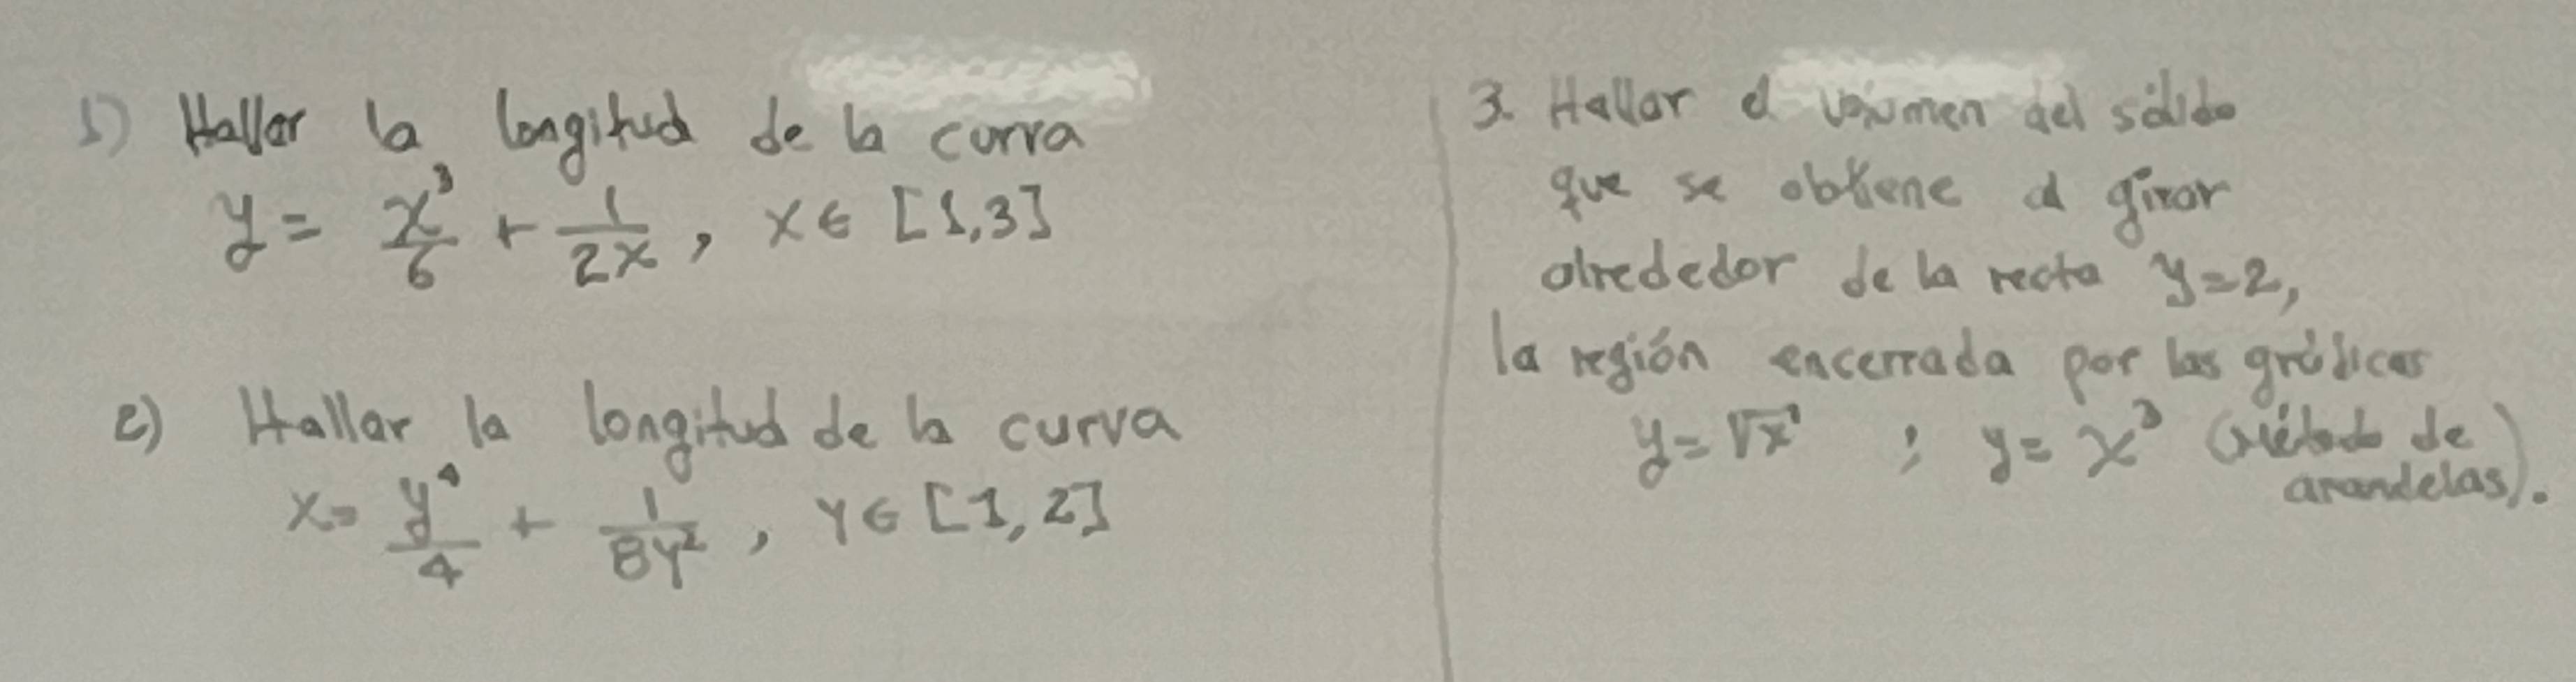 1) Hallar la longitud de la curva
y = x³/6 + 1/2x , x ∈ [1,3]
2) Hallar la longitud de la curva
x = y⁴/4 + 1/8y² , y ∈ [1,2]
3. Hallar el volumen del sólido
que se obtiene al girar
alrededor de la recta y=2,
la región encerrada por las gráficas
y=√x ; y= x³ (Método de
arandelas).